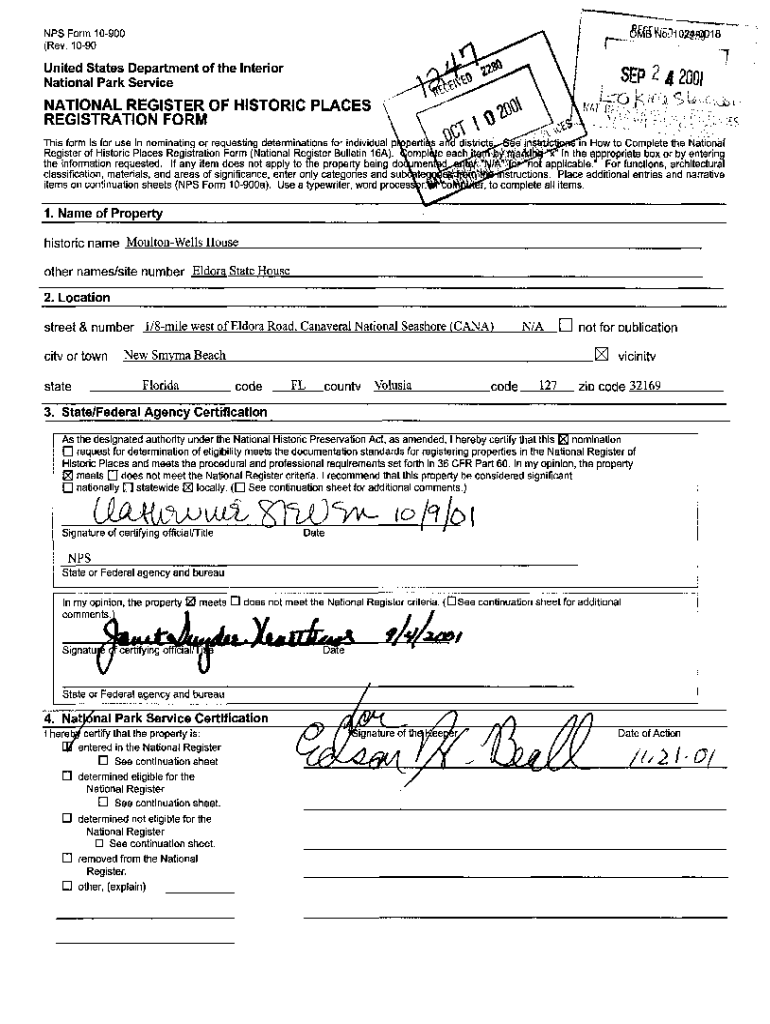 NPS Form 10-900
(Rev. 10-90
OMB No. 1024-0018
United States Department of the Interior
National Park Service
1247
RECEIVED 2280
OCT 10 2001
SEP 24 2001
NATIONAL REGISTER OF HISTORIC PLACES
REGISTRATION FORM
This form is for use in nominating or requesting determinations for individual properties and districts. See instructions in How to Complete the National
Register of Historic Places Registration Form (National Register Bulletin 16A). Complete each item by marking "x" in the appropriate box or by entering
the information requested. If any item does not apply to the property being documented, enter "N/A" for "not applicable." For functions, architectural
classification, materials, and areas of significance, enter only categories and subcategories from the instructions. Place additional entries and narrative
items on continuation sheets (NPS Form 10-900a). Use a typewriter, word processor, or computer, to complete all items.
1. Name of Property
historic name Moulton-Wells House
other names/site number Eldora State House
2. Location
street & number 1/8-mile west of Eldora Road, Canaveral National Seashore (CANA) N/A ☐ not for publication
city or town New Smyrna Beach ☒ vicinity
state Florida code FL county Volusia code 127 zip code 32169
3. State/Federal Agency Certification
As the designated authority under the National Historic Preservation Act, as amended, I hereby certify that this ☒ nomination
☐ request for determination of eligibility meets the documentation standards for registering properties in the National Register of
Historic Places and meets the procedural and professional requirements set forth in 36 CFR Part 60. In my opinion, the property
☒ meets ☐ does not meet the National Register criteria. I recommend that this property be considered significant
☐ nationally ☐ statewide ☒ locally. (☐ See continuation sheet for additional comments.)
10/9/01
Signature of certifying official/Title Date
NPS
State or Federal agency and bureau
In my opinion, the property ☒ meets ☐ does not meet the National Register criteria. (☐ See continuation sheet for additional
comments.)
Janet Snyder Matthews 9/4/2001
Signature of certifying official/Title Date
State or Federal agency and bureau
4. National Park Service Certification
I hereby certify that the property is:
for Signature of the Keeper Date of Action
☑ entered in the National Register
Edson H. Beall 11.21.01
☐ See continuation sheet
☐ determined eligible for the
National Register
☐ See continuation sheet.
☐ determined not eligible for the
National Register
☐ See continuation sheet.
☐ removed from the National
Register.
☐ other, (explain)